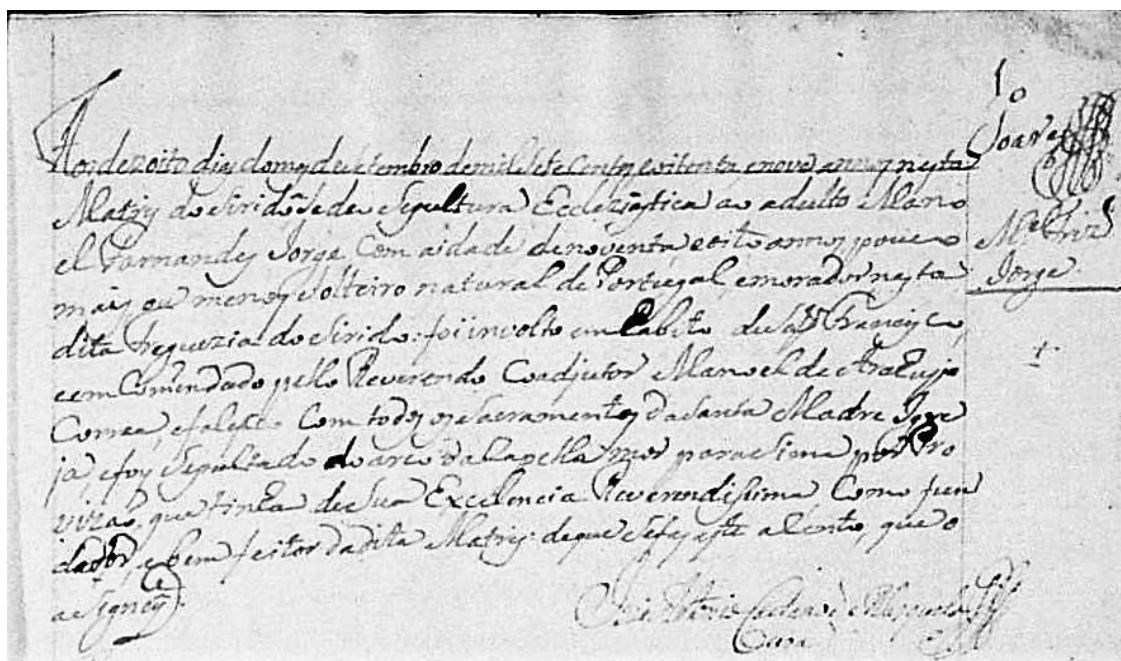 Aos dezoito dias do mes de setembro de mil sete Centos e oitenta e nove annos nesta
Matriz do Siridó se deu Sepultura Eccleziastica ao adulto Mano
el Fernandes Jorge Com a idade de noventa e oito annos pouco
mais ou menos solteiro natural de Portugal, e morador nesta
dita freguezia do Siridó: foi involto em habito de São Francisco,
e emComendado pello Reverendo Coadjutor Manoel de Araujo
Correa, e falesceo Com todos os sacramentos da Santa Madre Igre
ja, e foy sepultado do arco da Capella mor para sima por Pro
vizaó, que tinha de Sua Excelencia Reverendissima Como fun
dador, e bem feitor da dita Matriz: de que se fez este assento, que
assigney.
Jozé Antonio
Cura
Soares
Mel Frz
Jorge